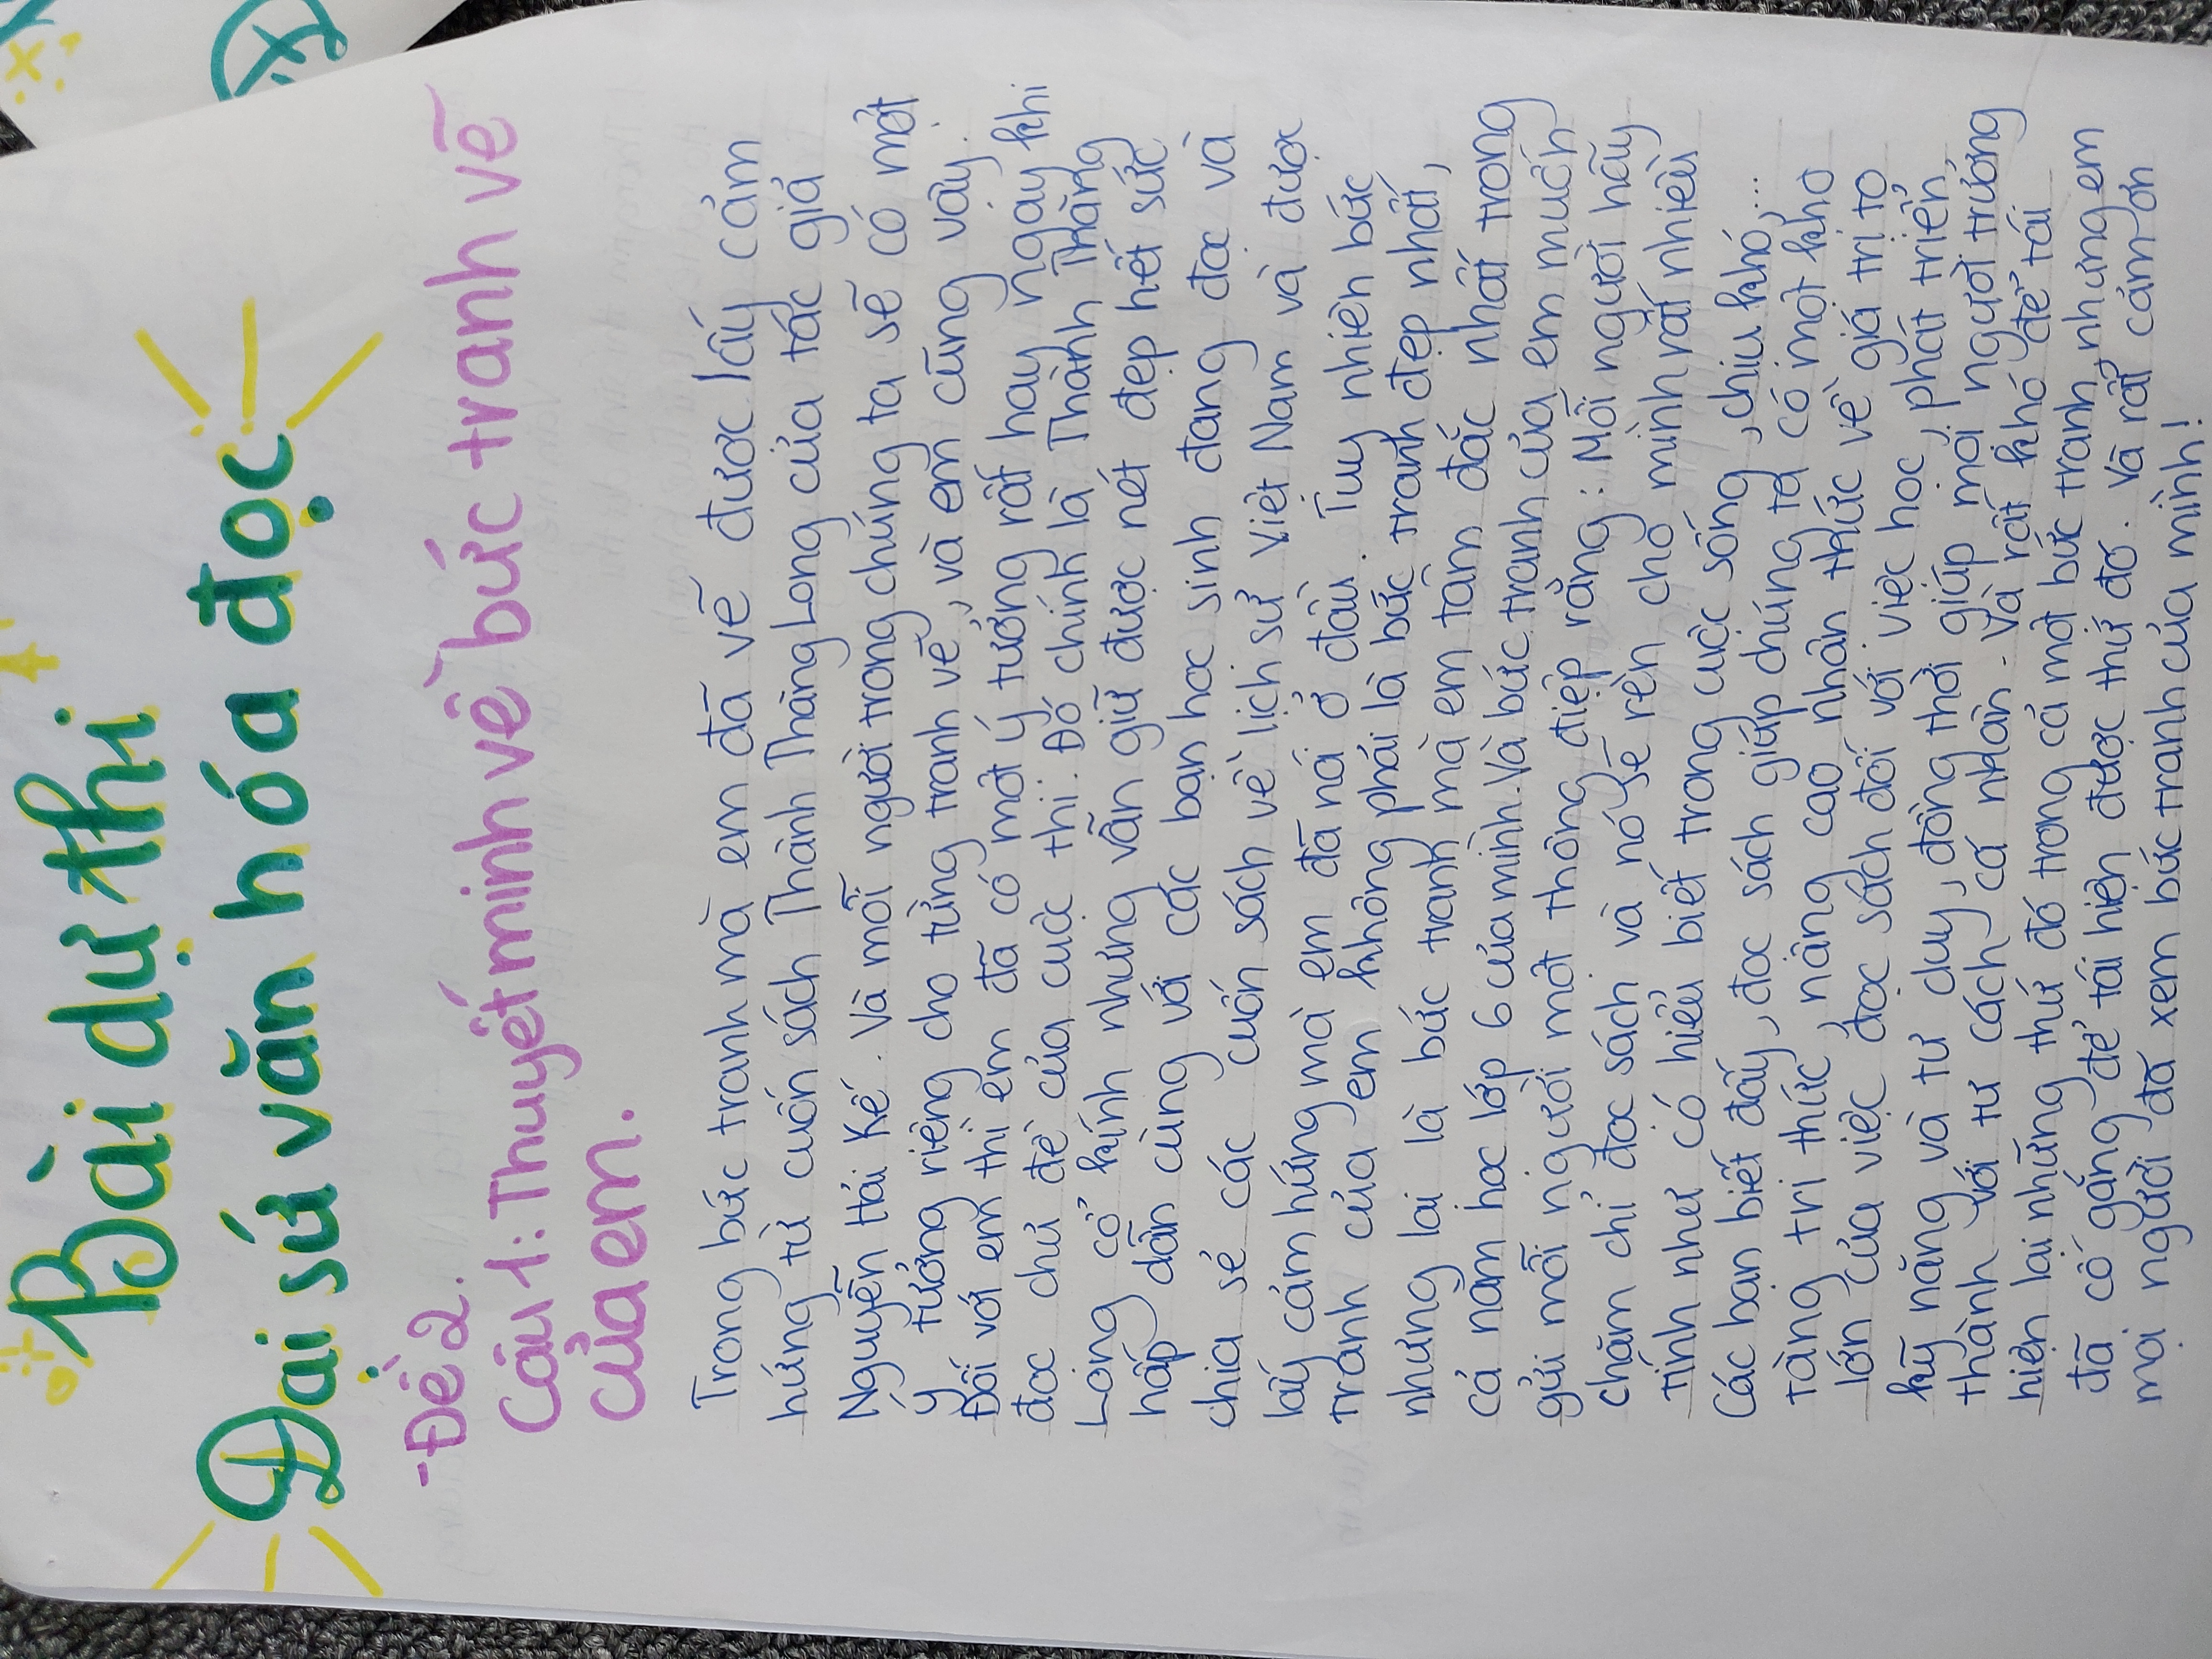 Bài dự thi
Đại sứ văn hóa đọc
-Đề 2.
Câu 1: Thuyết minh về bức tranh vẽ
của em.
Trong bức tranh mà em đã vẽ được lấy cảm
hứng từ cuốn sách Thành Thăng Long của tác giả
Nguyễn Hải Kế. Và mỗi người trong chúng ta sẽ có một
ý tưởng riêng cho từng tranh vẽ, và em cũng vậy.
Đối với em thì em đã có một ý tưởng rất hay ngay khi
đọc chủ đề của cuộc thi. Đó chính là Thành Thăng
Long cổ kính nhưng vẫn giữ được nét đẹp hết sức
hấp dẫn cùng với các bạn học sinh đang đọc và
chia sẻ các cuốn sách về lịch sử Việt Nam và được
lấy cảm hứng mà em đã nói ở đầu. Tuy nhiên bức
tranh của em không phải là bức tranh đẹp nhất,
nhưng lại là bức tranh mà em tâm đắc nhất trong
cả năm học lớp 6 của mình. Và bức tranh của em muốn
gửi mỗi người một thông điệp rằng: Mỗi người hãy
chăm chỉ đọc sách và nó sẽ rèn cho mình rất nhiều
tính như có hiểu biết trong cuộc sống, chịu khó,...
Các bạn biết đấy, đọc sách giúp chúng ta có một kho
tàng tri thức, nâng cao nhận thức về giá trị to
lớn của việc đọc sách đối với việc học, phát triển
kỹ năng và tư duy, đồng thời giúp mọi người trưởng
thành với tư cách cá nhân. Và rất khó để tái
hiện lại những thứ đó trong cả một bức tranh nhưng em
đã cố gắng để tái hiện được thứ đó. Và rất cảm ơn
mọi người đã xem bức tranh của mình!